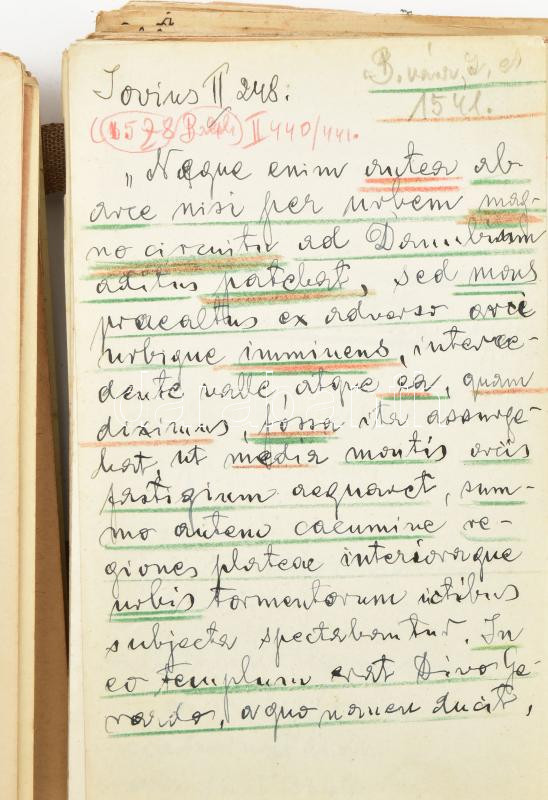 B. vár, 2, és
1541.
Jovius II 248:
(1578 Basel) II 440/441.
„Neque enim antea ab
arce nisi per urbem mag-
no circuitu ad Danubium
aditus patebat, sed mons
praealtus ex adverso arci
urbique imminens, interce-
dente valle, atque ea, quam
diximus, fossa ita assurge-
bat, ut media montis arcis
fastigium aequaret, sum-
mo autem cacumine re-
giones plateae interioraque
urbis tormentorum ictibus
subjecta spectabantur. In
eo templum erat Divo Ge-
rardo, a quo nomen ducit,